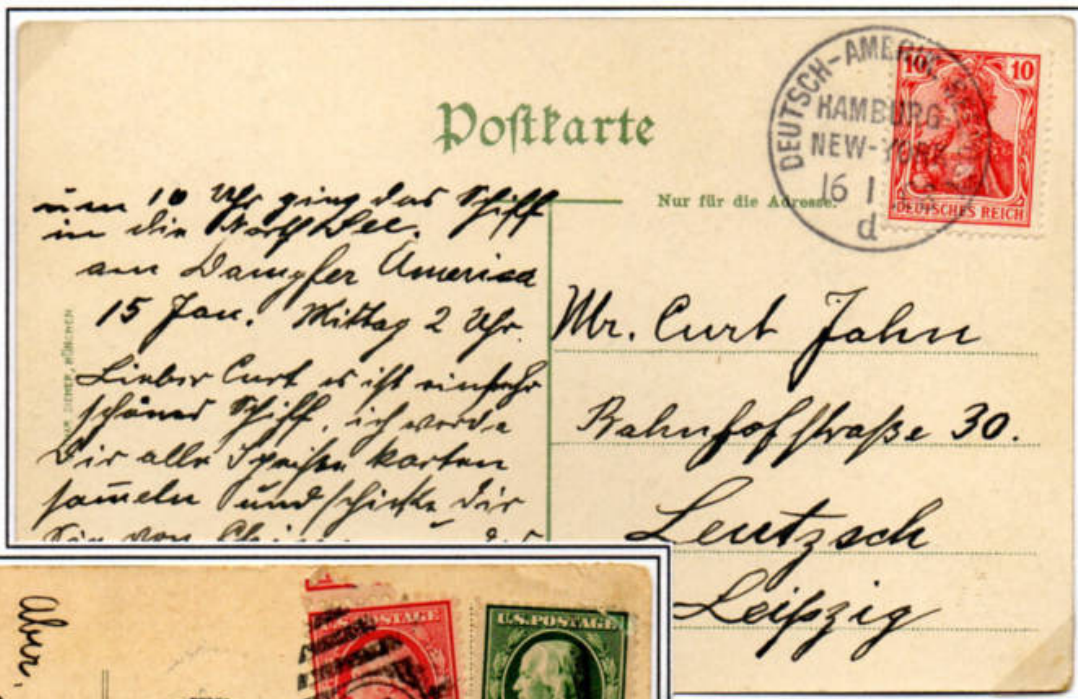 Postkarte
DEUTSCH-AMERIK.
HAMBURG-
NEW-YORK
16 1
d
10 10
DEUTSCHES REICH
Nur für die Adresse.
um 10 Uhr ging das Schiff
in die North See.
am Dampfer America
15 Jan. Mittag 2 Uhr.
Lieber Curt es ist ein sehr
schönes Schiff, ich werde
Dir alle Speise karten
sam̄eln und schicke dir
Sie von
Mr. Curt Jahn
Bahnhofstraße 30.
Leutzsch
Leipzig
MÜNCHEN
U.S. POSTAGE
U.S. POSTAGE